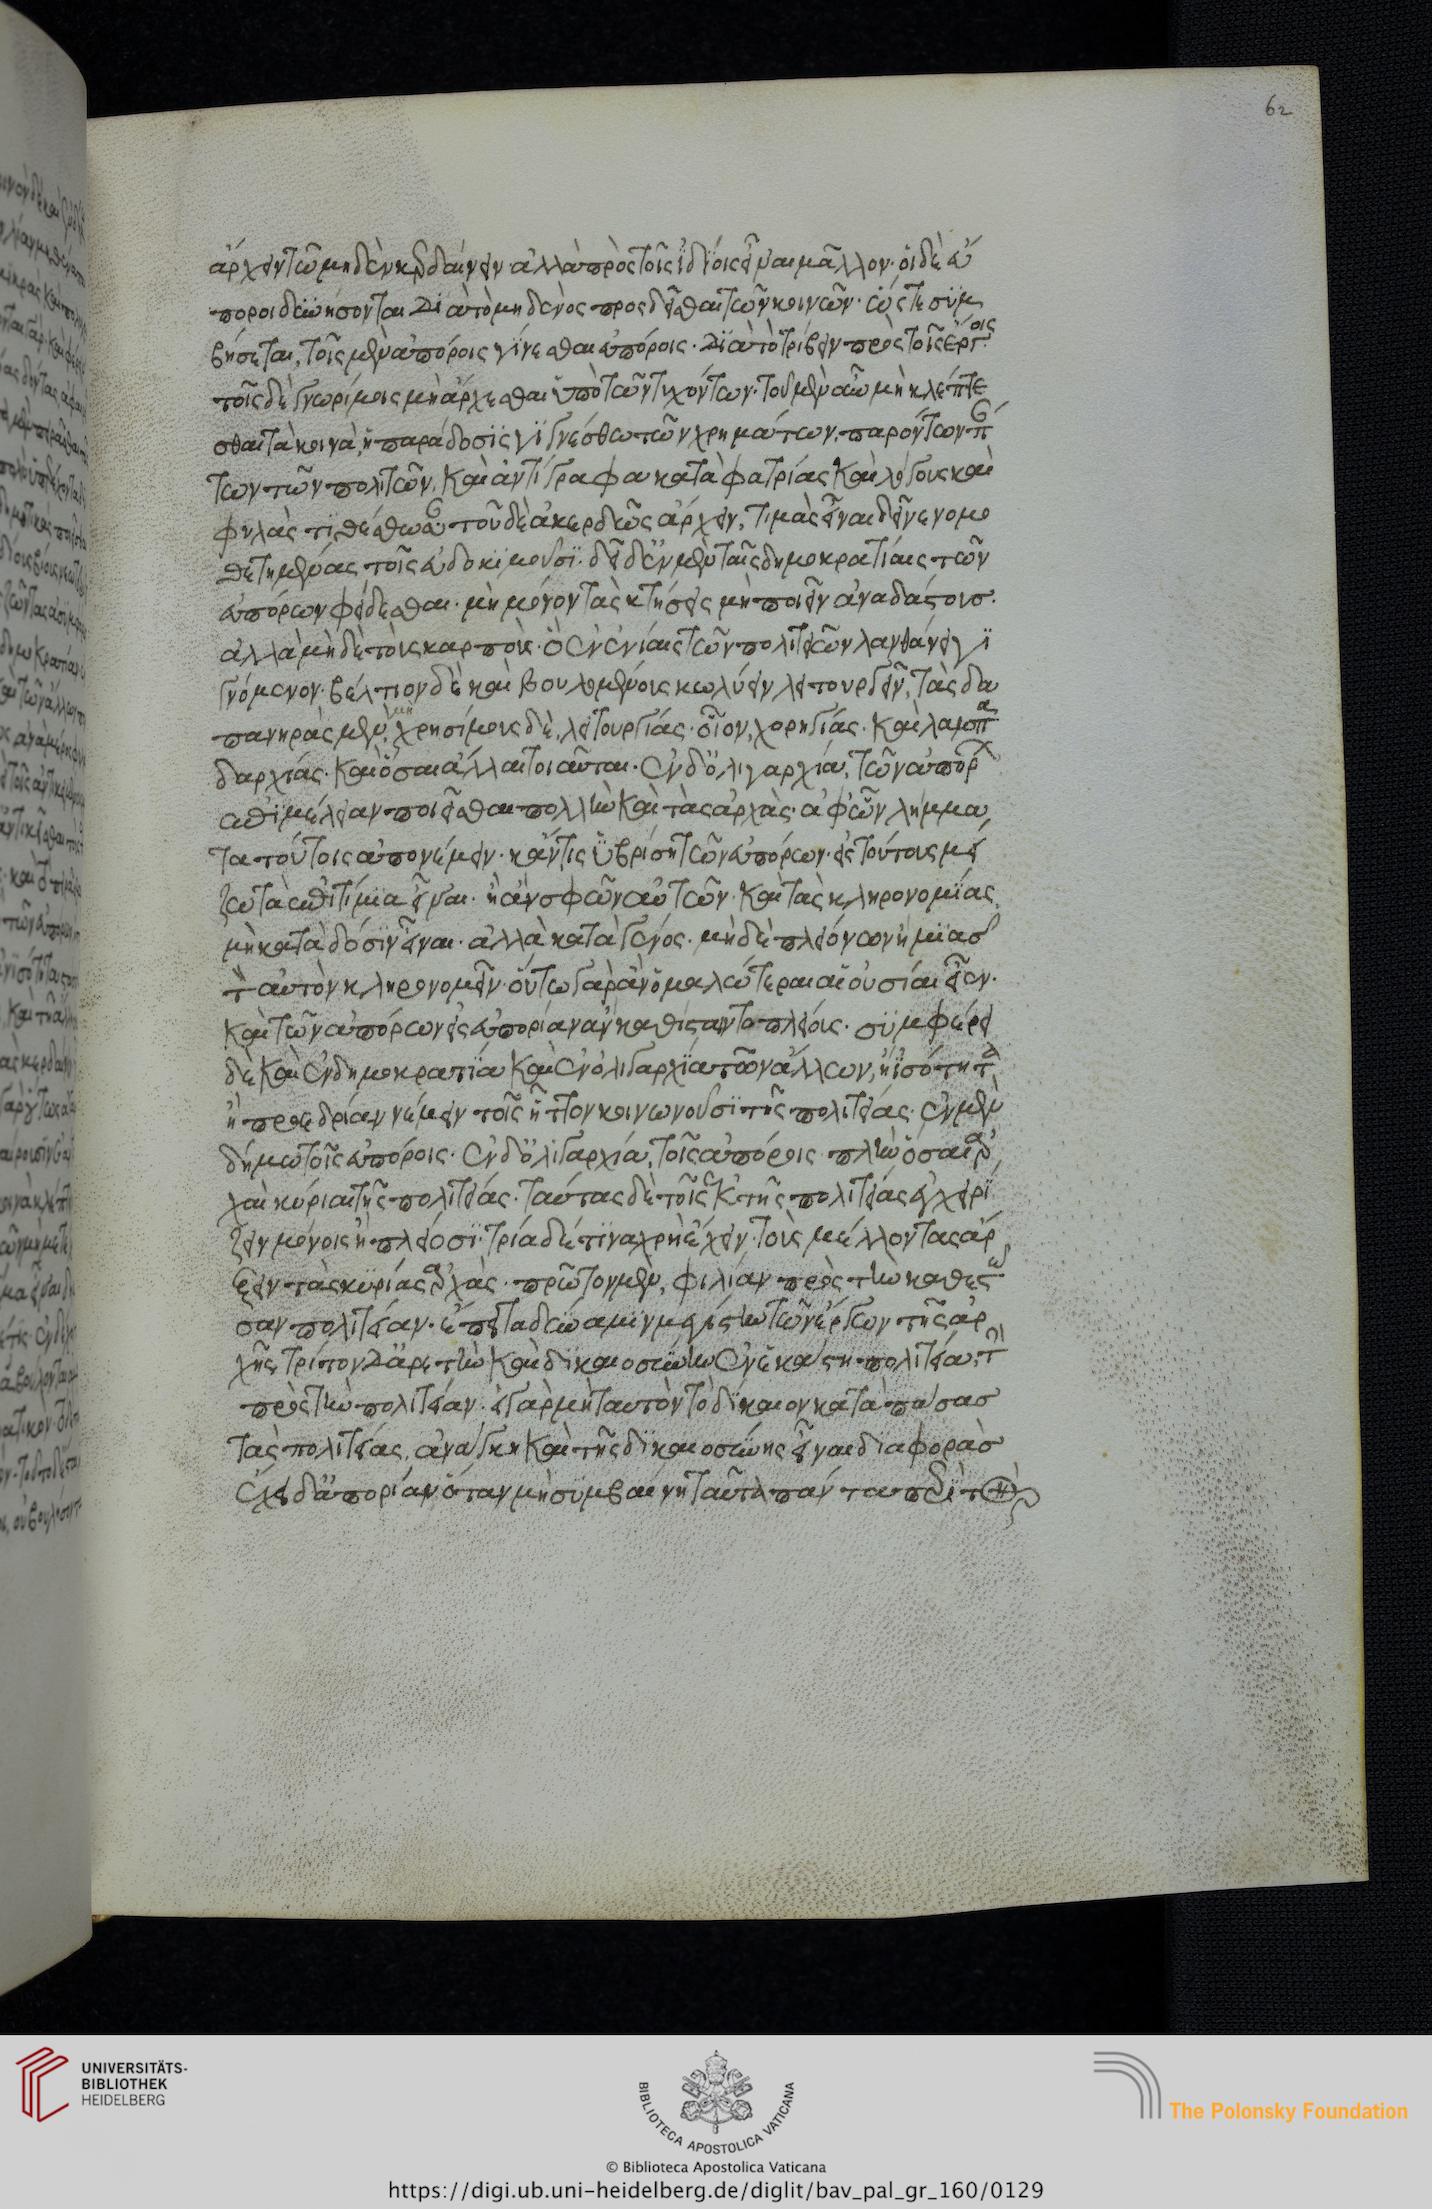 62
άρχειν τῶ μηδὲν κερδαίνειν· ἀλλὰ πρὸς τοῖς ἰδίοις εἶναι μᾶλλον· οἱ δὲ εὔ
ποροι δεήσονται διὰ τὸ μηδενὸς προσδεῖσθαι τῶν κοινῶν· ὥστε συμ
βήσεται, τοῖς μὲν ἀπόροις γίνεσθαι εὐπόροις· διὰ τὸ τρίβειν πρὸς τοῖς ἔργοις
τοῖς δὲ γνωρίμοις μὴ ἄρχεσθαι ὑπὸ τῶν τυχόντων· τοῦ μὲν οὖν μὴ κλέπτε
σθαι τὰ κοινὰ, ἡ παράδοσις γιγνέσθω τῶν χρημάτων, παρόντων πάν
των τῶν πολιτῶν, καὶ ἀντίγραφα κατὰ φατρίας καὶ λόχους καὶ
φυλὰς τιθέσθωσαν τοῦ δὲ ἀκερδῶς ἄρχειν, τιμὰς εἶναι δεῖ νενομο
θετημένας τοῖς εὐδοκιμοῦσι· δεῖ δ' ἐν μὲν ταῖς δημοκρατίαις τῶν
εὐπόρων φείδεσθαι· μὴ μόνον τὰς κτήσεις μὴ ποιεῖν ἀναδάστους·
ἀλλὰ μὴ δὲ τοὺς καρποὺς· ὃ ἐν ἐνίαις τῶν πολιτειῶν λανθάνει γι
γνόμενον· βέλτιον δὲ καὶ βουλομένους κωλύειν λειτουργεῖν, τὰς δα
πανηρὰς μὲν, μὴ χρησίμους δὲ, λειτουργίας· οἷον, χορηγίας· καὶ λαμπα
δαρχίας· καὶ ὅσαι ἄλλαι τοιαῦται· ἐν δ' ὀλιγαρχία, τῶν ἀπόρων
ἐπιμέλειαν ποιεῖσθαι πολλὴν καὶ τὰς ἀρχὰς· ἀφ' ὧν λήμμα
τα τούτοις ἀπονέμειν· κἄν τις ὑβρίση τῶν εὐπόρων εἰς τούτους μεί
ζω τὰ ἐπιτίμια εἶναι· ἢ ἂν σφῶν αὐτῶν· καὶ τὰς κληρονομίας,
μὴ κατὰ δόσιν εἶναι· ἀλλὰ κατὰ γένος· μὴ δὲ πλειόνων ἢ μιᾶς
τὸν αὐτὸν κληρονομεῖν· οὕτω γὰρ ἂν ὁμαλώτεραι αἱ οὐσίαι εἶεν·
καὶ τῶν ἀπόρων εἰς εὐπορίαν ἂν καθίσταιντο πλείους· συμφέρει
δὲ καὶ ἐν δημοκρατία καὶ ἐν ὀλιγαρχία τῶν ἄλλων, ἢ ἰσότητα
ἢ προεδρίαν νέμειν τοῖς ἧττον κοινωνοῦσι τῆς πολιτείας· ἐν μὲν
δήμω τοῖς εὐπόροις· ἐν δ' ὀλιγαρχία, τοῖς ἀπόροις πλὴν ὅσαι ἀρ
χαὶ κύριαι τῆς πολιτείας· ταύτας δὲ τοῖς ἐκ τῆς πολιτείας ἐγχειρί
ζειν μόνοις ἢ πλείοσι· τρία δέ τινα χρὴ ἔχειν τοὺς μέλλοντας ἄρ
ξειν τὰς κυρίας ἀρχὰς· πρῶτον μὲν, φιλίαν πρὸς τὴν καθεστῶ
σαν πολιτείαν· ἔπειτα δύναμιν μεγίστην τῶν ἔργων τῆς ἀρ
χῆς τρίτον δ' ἀρετὴν καὶ δικαιοσύνην ἐν ἑκάστη πολιτεία τὴν
πρὸς τὴν πολιτείαν· εἰ γὰρ μὴ ταυτὸν τὸ δίκαιον κατὰ πάσας
τὰς πολιτείας, ἀνάγκη καὶ τῆς δικαιοσύνης εἶναι διαφορὰς
ἔχει δ' ἀπορίαν, ὅταν μὴ συμβαίνη ταῦτα πάντα περὶ τὸν
UNIVERSITÄTS-
BIBLIOTHEK
HEIDELBERG
BIBLIOTECA APOSTOLICA VATICANA
The Polonsky Foundation
© Biblioteca Apostolica Vaticana
https://digi.ub.uni-heidelberg.de/diglit/bav_pal_gr_160/0129